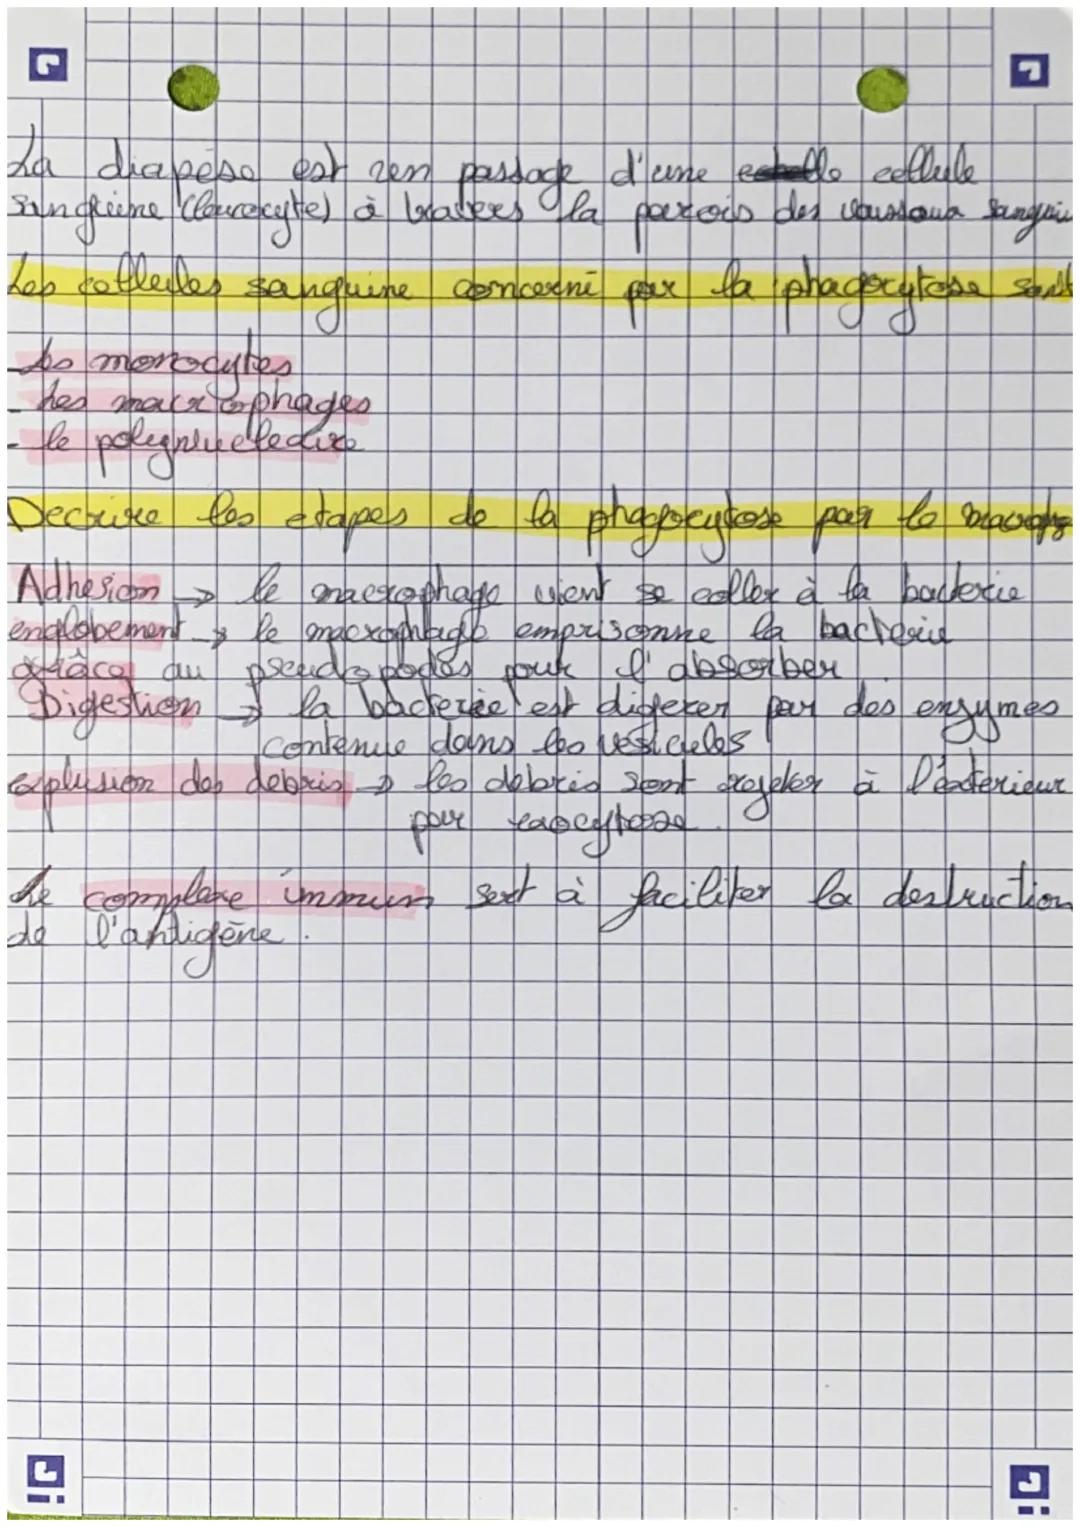 La diapese est un passage d'une cellule
sanguine (leucocyte) à travers la parois des vaisseaux sanguin
Les cellules sanguine concerné par la phagocytose sont
- les monocytes
- les macrophages
- le polynucleaire
Decrire les etapes de la phagocytose par le macrophage
Adhesion → le macrophage vient se coller à la bacterie
englobement → le macrophage emprisonne la bacterie
grâce au pseudopodes pour l'absorber
Digestion → la bacterie est digerer par des enzymes
contenue dans les vesicules
explusion des debris → les debris sont rejeter à l'exterieur
par exocytose.
Le complexe immun sert à faciliter la destruction
de l'antigène.